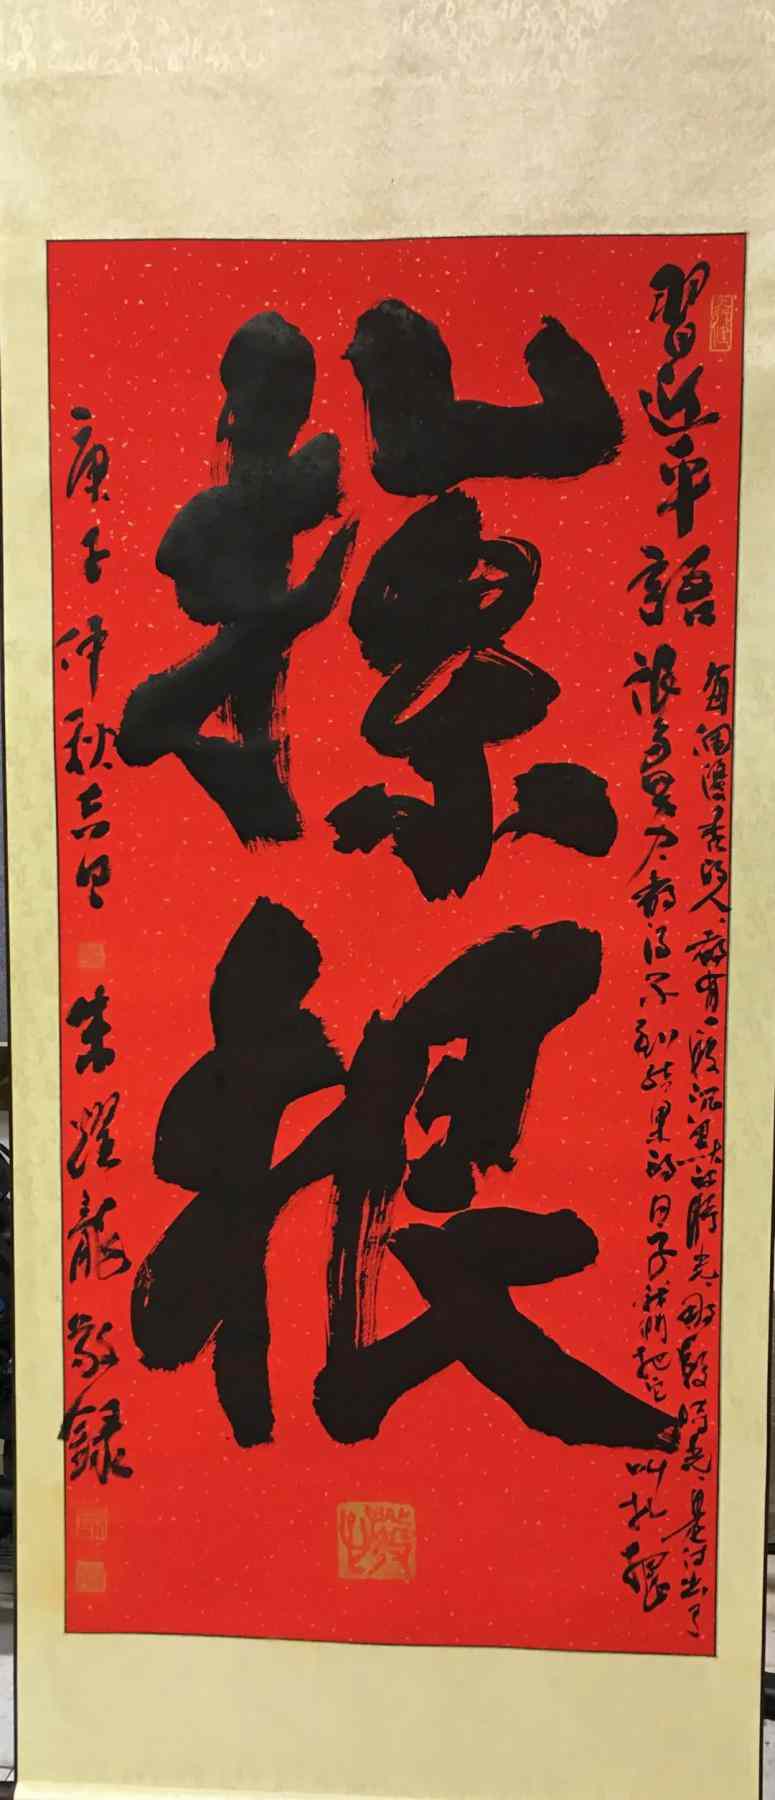 習近平語
每個優秀的人都有一段沉默的時光那段時光是付出了
很多努力都得不到結果的日子我們把它叫扎根
根
庚子仲秋吉日 朱龍敬錄